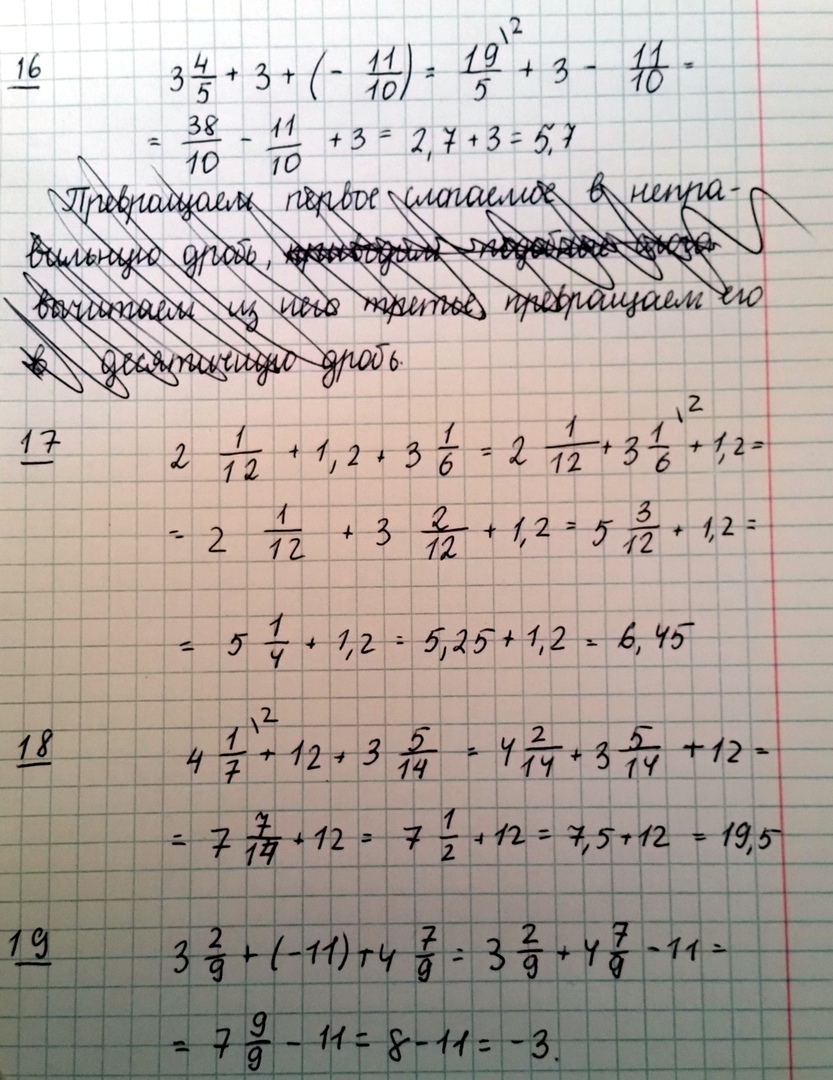 16 3 4/5 + 3 + (- 11/10) = 19/5 \2 + 3 - 11/10 =
= 38/10 - 11/10 + 3 = 2,7 + 3 = 5,7
Превращаем первое слогаемое в непра-
вильную дробь,
вычитаем из него третье, превращаем его
в десятичную дробь.
17 2 1/12 + 1,2 + 3 1/6 = 2 1/12 + 3 1/6 \2 + 1,2 =
= 2 1/12 + 3 2/12 + 1,2 = 5 3/12 + 1,2 =
= 5 1/4 + 1,2 = 5,25 + 1,2 = 6,45
18 4 1/7 \2 + 12 + 3 5/14 = 4 2/14 + 3 5/14 + 12 =
= 7 7/14 + 12 = 7 1/2 + 12 = 7,5 + 12 = 19,5
19 3 2/9 + (-11) + 4 7/9 = 3 2/9 + 4 7/9 - 11 =
= 7 9/9 - 11 = 8 - 11 = -3.